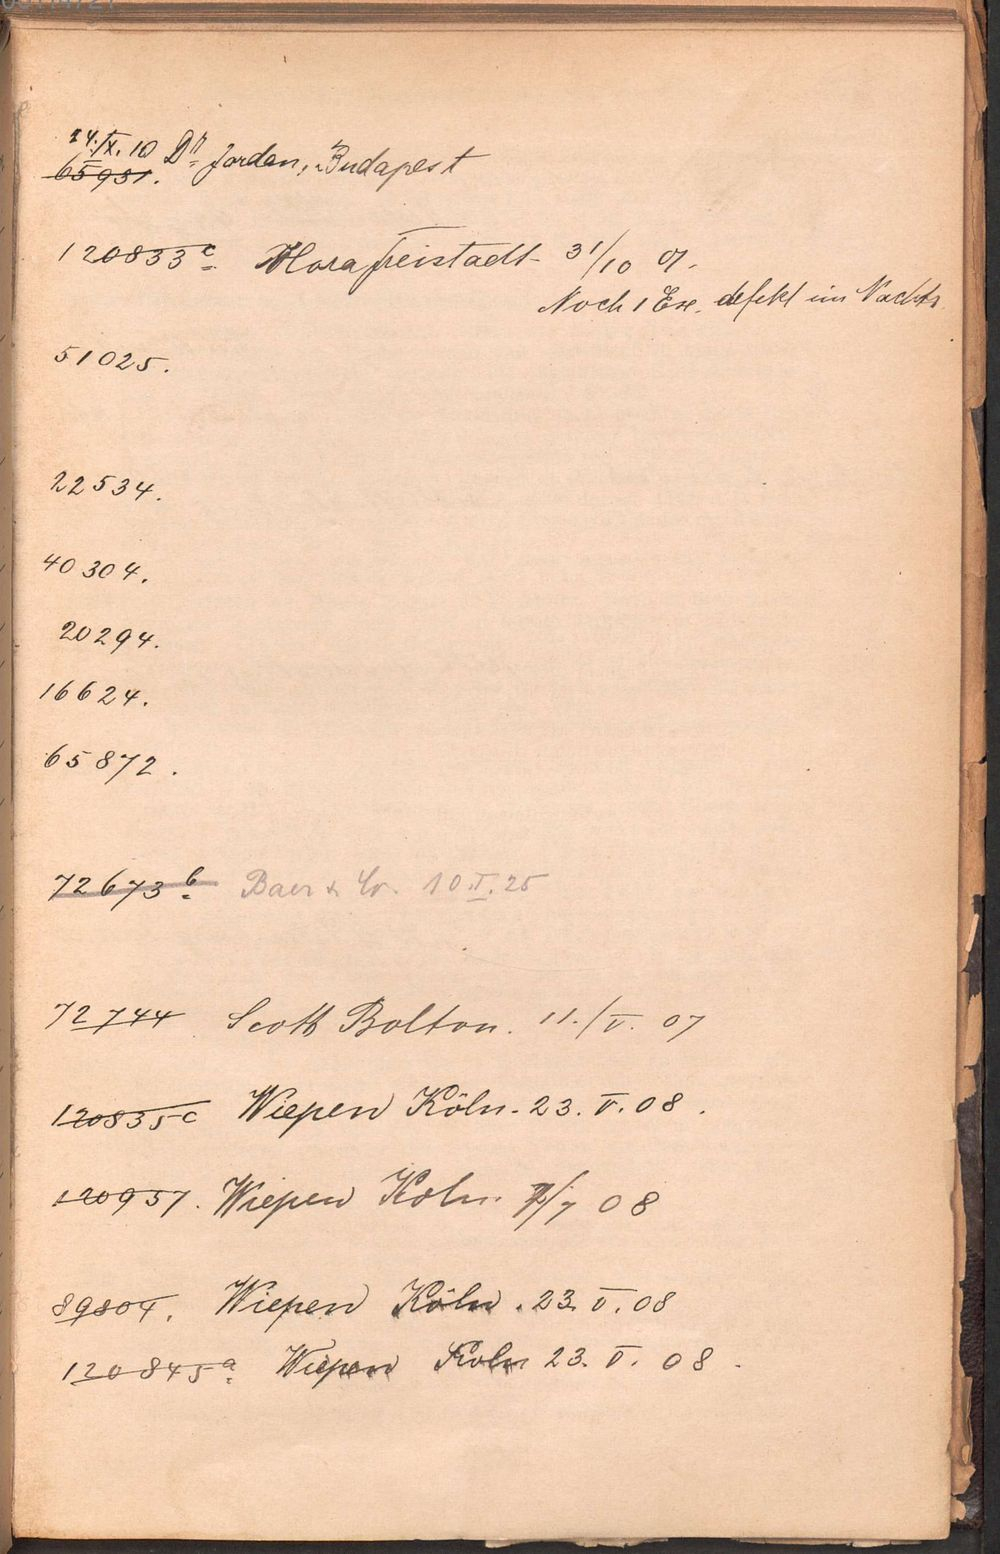 24./IX. 10 Dr. Jordan, Budapest
65931.
120833c Flora Freistadtl 31/10 07.
Noch 1 Ex. defekt im Nachtr.
51025.
22534.
40304.
20294.
16624.
65872.
72673b Baer & Co. 10.II.25
72744 Scott Bolton. 11./V. 07
120835c Wiepen Köln. 23. V. 08.
120957. Wiepen Köln. /7 08
89804. Wiepen Köln. 23. V. 08
120845a Wiepen Köln 23. V. 08.